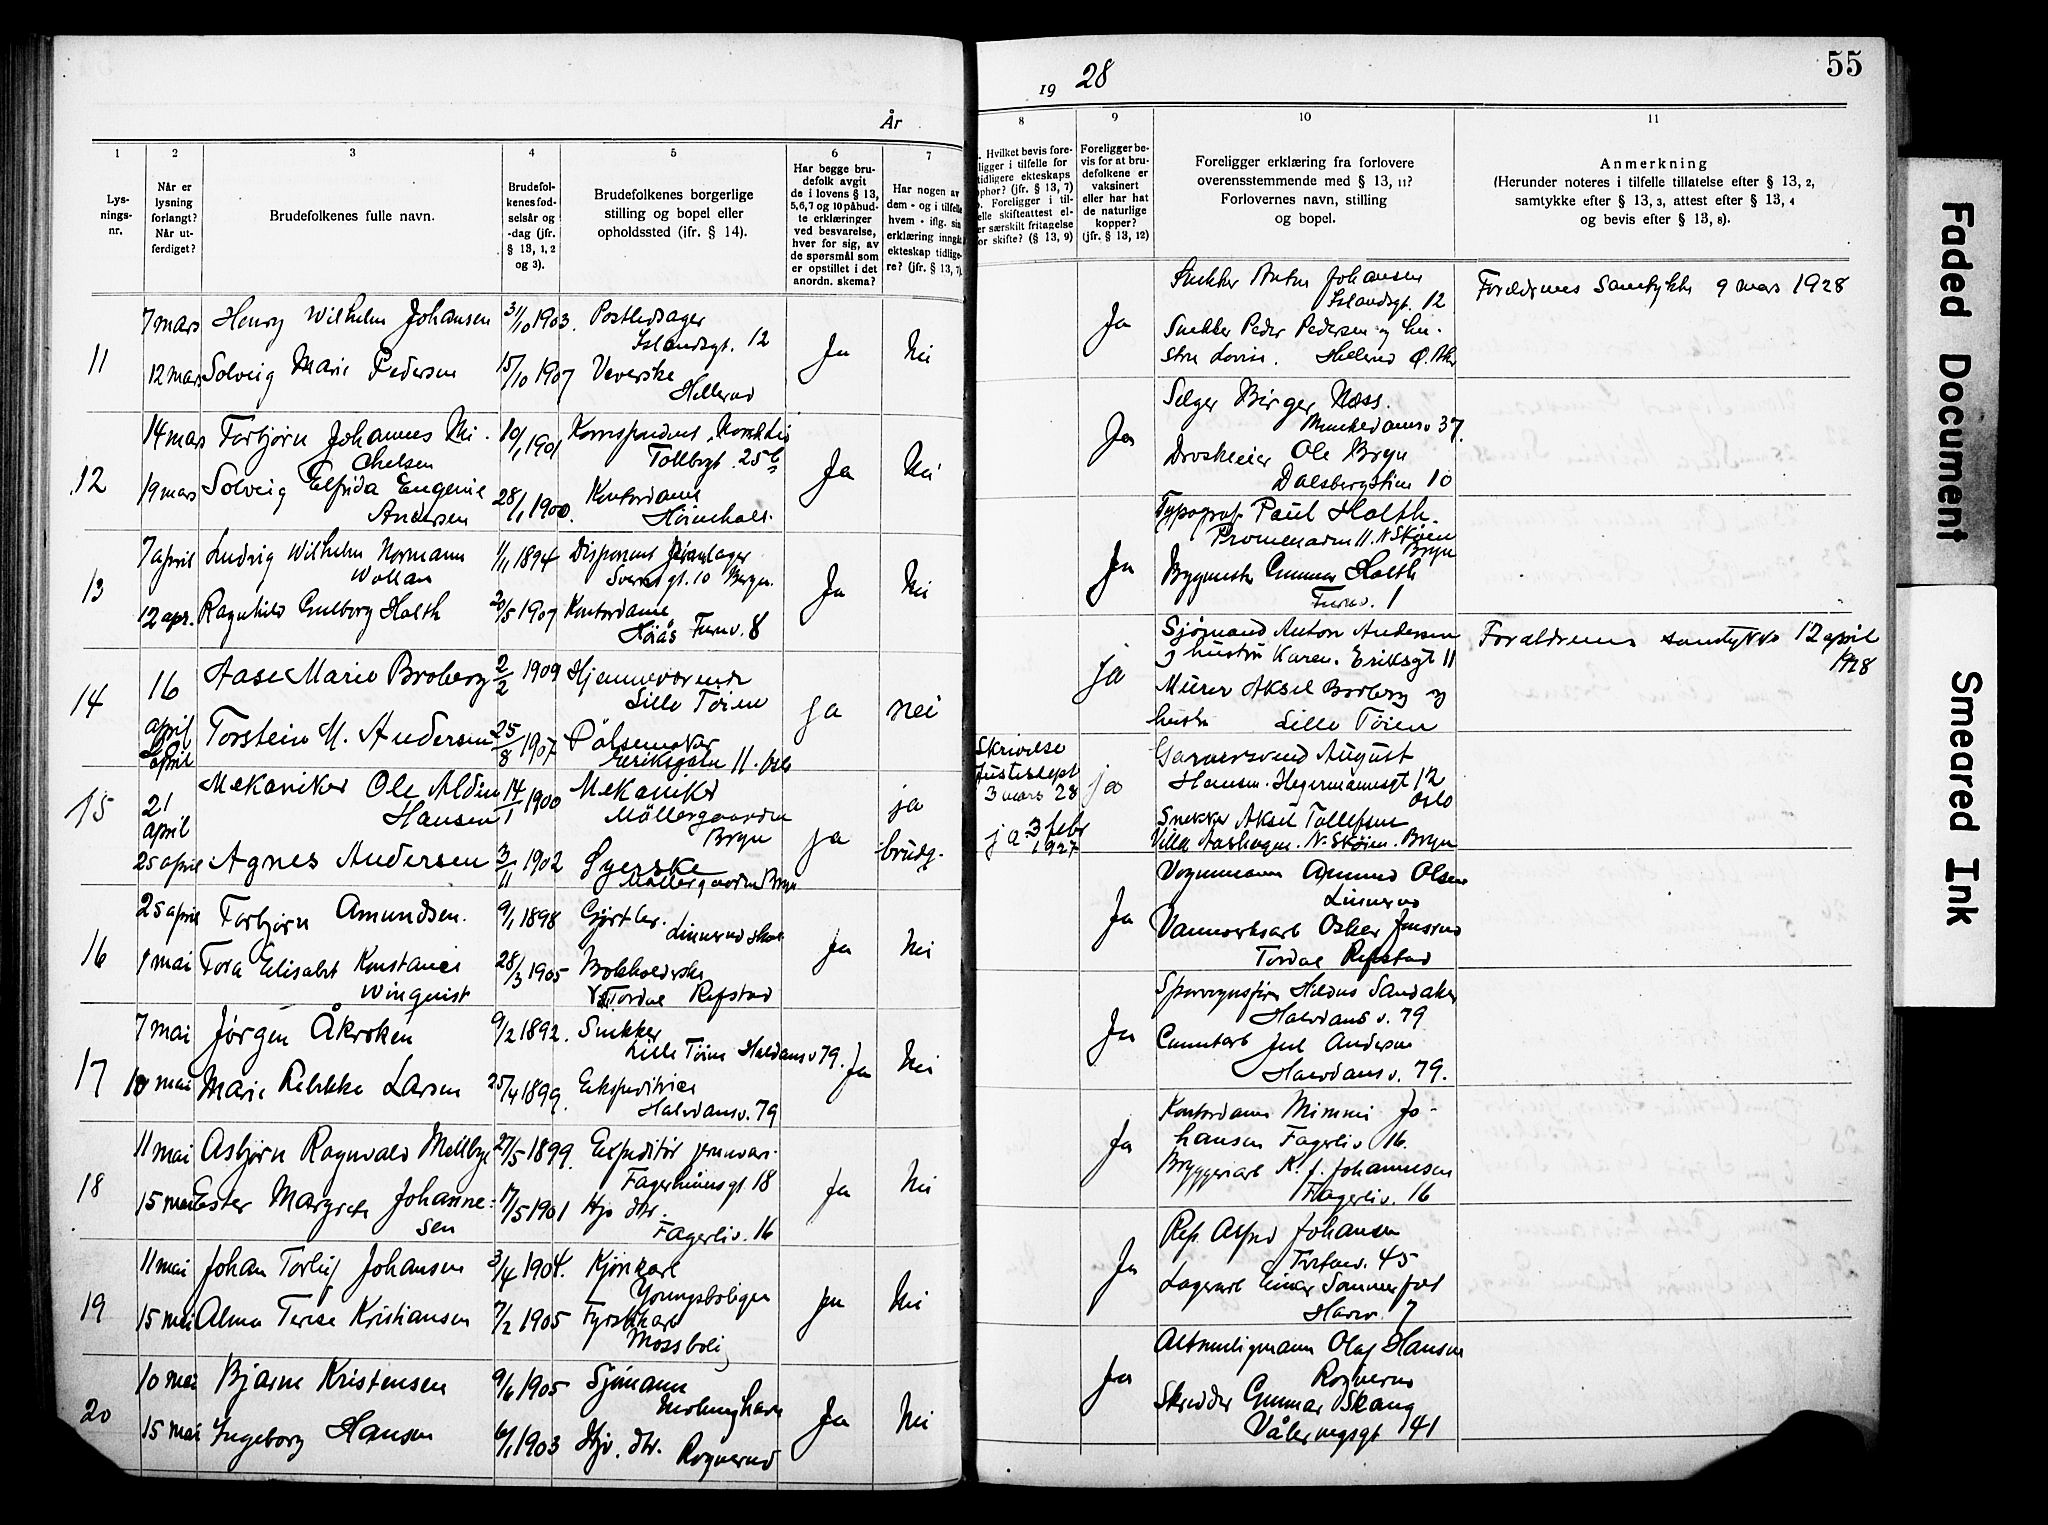 55
År
19 28
1
Lys-
nings-
nr.
2
Når er
lysning
forlangt?
Når ut-
ferdiget?
3
Brudefolkenes fulle navn.
4
Brudefol-
kenes fød-
selsår og
-dag (jfr.
§ 13, 1, 2
og 3).
5
Brudefolkenes borgerlige
stilling og bopel eller
opholdssted (ifr. § 14).
6
Har begge bru-
defolk avgit
de i lovens § 13,
5,6,7 og 10 påbud-
te erklæringer
ved besvarelse,
hver for sig, av
de spørsmål som
er opstillet i det
anordn. skema?
7
Har nogen av
dem - og i tilfelle
hvem - iflg. sin
erklæring inngåt
ekteskap tidlige-
re? (jfr. § 13, 7)
8
. Hvilket bevis fore-
ligger i tilfelle for
tidligere ekteskaps
ophør? (jfr. § 13, 7)
. Foreligger i til-
elle skifteattest el-
er særskilt fritagelse
or skifte? (§ 13, 9)
9
Foreligger be-
vis for at bru-
defolkene er
vaksinert
eller har hat
de naturlige
kopper?
(jfr. § 13, 12)
10
Foreligger erklæring fra forlovere
overensstemmende med § 13, 11?
Forlovernes navn, stilling
og bopel.
11
Anmerkning
(Herunder noteres i tilfelle tillatelse efter § 13, 2,
samtykke efter § 13, 3, attest efter § 13, 4
og bevis efter § 13, 8).
11
7 mars Henry Wilhelm Johansen 3/10 1903. Postledsager
Islandsgt. 12
12 mars Solveig Marie Pedersen 15/10 1907 Veverske
Hellerud
Ja Nei
Ja
Snekker Anton Johansen
Islandsgt. 12
Snekker Peder Pedersen og hu-
stru Lovise. Hellerud Ø. Aker
Forældrenes Samtykke 9 mars 1928
12
14 mars Torbjørn Johannes Mi-
chelsen 10/1 1901 Korrespondent
Tollbogt. 25 b
19 mars Solveig Elfrida Eugenie
Andersen 28/1 1900. Kontordame
Ja Nei
Ja
Selger Birger Næss.
Munkedamsv 37.
Droskeeier Ole Bryn
Dalsbergstien 10
13
7 april Ludvig Wilhelm Normann
Wollan 1/1 1894 Disponent
Sverresgt. 10 Bergen
12 apr. Ragnhild Gulborg Holth 20/5 1907 Kontordame
Høiås Furuv. 8
Ja Nei
Ja
Typograf Paul Holth.
Promenaden 11. N Skøien
Bryn
Bygmester Gunnar Holth
Furuv. 1
14
16
april Aase Marie Broberg 2/2 1909 Hjemmeværende
Lille Tøien
april Torstein M. Andersen 25/8 1907 Pølsemaker
Eriksgaten 11. Oslo
ja nei
ja
Sjømand Anton Andersen
og hustru Karen. Eriksgt 11
Murer Aksel Broberg og
hustru Lille Tøien
Foraldrenes samtykke 12 april
1928
15
21
april Mekaniker Ole Aldin
Hansen 14/1 1900 Mekaniker
Møllergaarden
Bryn
25 april Agnes Andersen 3/11 1902 Syerske
Møllergaarden Bryn
ja ja
brudg.
Skrivelse
Justisdept
3 mars 28
ja 3 febr
1927
ja
Garversvend August
Hansen. Hegermannsgt 12
Oslo
Snekker Aksel Tollefsen
Villa Aashagen. N. Skøien. Bryn
16
25 april Torbjørn Amundsen. 9/1 1898 Gjørtler.
Linnerud skole
1 mai Tora Elisabet Konstanse
Winquist 28/3 1905 Bokholderske
Tordal Refstad
Ja Nei
Ja
Vognmann Amund Olsen
Linnerud
Vannverksarb Oskar Jensrud
Tordal Refstad
17
7 mai Jørgen Åkroken 9/2 1892. Snekker
Lille Tøien Haldansv 79.
10 mai Marie Rebekke Larsen 25/4 1899. Ekspeditrise
Halvdansv. 79
Ja Nei
Ja
Sporvognsfører Haldus Sandaker
Halvdans v. 79
Cementarb Juel Andersen
Halvdansv. 79.
18
11 mai Asbjørn Ragnvald Mellbye 27/5 1899. Expeditør jernvare.
Fagerheimsgt 18
15 mai Ester Margrete Johanne-
sen 17/5 1901 Hjv dtr.
Fagerliv. 16
Ja Nei
Ja
Kontordame Mimmi Jo-
hansen Fagerliv 16.
Bryggeriarb K. J. Johannesen
Fagerliv. 16
19
11 mai Johan Torleif Johansen 3/4 1904. Kjørekarl
Youngsboligen
15 mai Alma Terese Kristiansen 7/2 1905
Mossboli
ja Nei
Ja
Rep. Alfred Johansen
45
Lagerarb Einar Sommerfelt
7
20
10 mai Bjarne Kristensen 9/6 1905 Sjømann
15 mai Ingeborg Hansen 6/1 1903 Hjv. dtr.
Rognerud
Ja Nei
Ja
Altmuligmann Olaf Hansen
Rognerud
Skredder Gunnar Skaug
Vålerengsgt 41
Faded Document
Smeared Ink